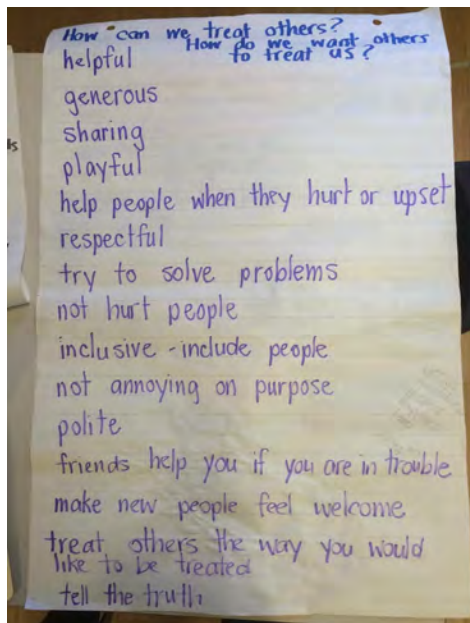 How can we treat others?
How do we want others
to treat us?
helpful
generous
sharing
playful
help people when they hurt or upset
respectful
try to solve problems
not hurt people
inclusive - include people
not annoying on purpose
polite
friends help you if you are in trouble
make new people feel welcome
treat others the way you would
like to be treated
tell the truth